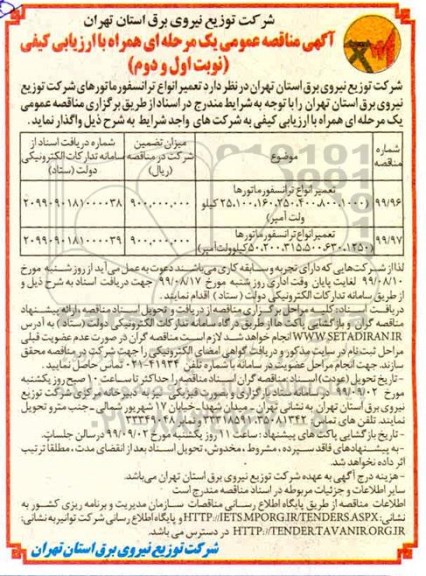 شرکت توزیع نیروی برق استان تهران
آگهی مناقصه عمومی یک مرحله ای همراه با ارزیابی کیفی
(نوبت اول و دوم)
شرکت توزیع نیروی برق استان تهران در نظر دارد تعمیر انواع ترانسفورماتورهای شرکت توزیع
نیروی برق استان تهران را با توجه به شرایط مندرج در اسناد از طریق برگزاری مناقصه عمومی
یک مرحله ای همراه با ارزیابی کیفی به شرکت های واجد شرایط به شرح ذیل واگذار نماید.
شماره مناقصه موضوع میزان تضمین شرکت در مناقصه (ریال) شماره دریافت اسناد از سامانه تدارکات الکترونیکی دولت (ستاد)
۹۹/۹۶ تعمیر انواع ترانسفورماتورها (۲۵،۱۰۰،۱۶۰،۲۵۰،۴۰۰،۸۰۰،۱۰۰۰ کیلو ولت آمپر) ۹۰۰,۰۰۰,۰۰۰ ۲۰۹۹۰۹۰۱۸۱۰۰۰۰۳۸
۹۹/۹۷ تعمیر انواع ترانسفورماتورها (۵۰،۲۰۰،۳۱۵،۵۰۰،۶۳۰،۱۲۵۰ کیلوولت آمپر) ۹۰۰,۰۰۰,۰۰۰ ۲۰۹۹۰۹۰۱۸۱۰۰۰۰۳۹
لذا از شرکت هایی که دارای تجربه و سابقه کاری می باشند دعوت به عمل می آید از روز شنبه مورخ
۹۹/۰۸/۱۰ لغایت پایان وقت اداری روز شنبه مورخ ۹۹/۰۸/۱۷ جهت دریافت اسناد به شرح ذیل و
از طریق سامانه تدارکات الکترونیکی دولت (ستاد) اقدام نمایند.
دریافت اسناد: کلیه مراحل برگزاری مناقصه از دریافت و تحویل اسناد مناقصه و ارائه پیشنهاد
مناقصه گران و بازگشایی پاکت ها از طریق درگاه سامانه تدارکات الکترونیکی دولت (ستاد) به آدرس
WWW.SETADIRAN.IR انجام خواهد شد. لازم است مناقصه گران در صورت عدم عضویت قبلی
مراحل ثبت نام در سایت مذکور و دریافت گواهی امضای الکترونیکی را جهت شرکت در مناقصه محقق
سازند. جهت انجام مراحل عضویت در سامانه با شماره تلفن ۴۱۹۳۴-۰۲۱ تماس حاصل نمایید.
- تاریخ تحویل (عودت) اسناد: مناقصه گران اسناد مناقصه را حداکثر تا ساعت ۱۰ صبح روز یکشنبه
مورخ ۹۹/۰۹/۰۲ در سامانه ستاد بارگزاری و بصورت فیزیکی نیز به دبیرخانه مرکزی شرکت توزیع
نیروی برق استان تهران به نشانی تهران - میدان شهدا، خیابان ۱۷ شهریور شمالی - جنب مترو تحویل
نمایند. تلفن های تماس: ۳۵۰۸۱۳۴۲،۳۳۳۴۱۸۵۹ و نمابر ۳۳۳۴۹۰۴۸
- تاریخ بازگشایی پاکت های پیشنهاد: ساعت ۱۱ روز یکشنبه مورخ ۹۹/۰۹/۰۲ در سالن جلسات
- به پیشنهادهای فاقد سپرده، مشروط، مخدوش، تحویل اسناد بعد از انقضای مدت، مطلقا ترتیب
اثر داده نخواهد شد.
- هزینه درج آگهی به عهده شرکت توزیع نیروی برق استان تهران می باشد.
سایر اطلاعات و جزئیات مربوطه در اسناد مناقصه مندرج است
اطلاعات مناقصه از طریق پایگاه اطلاع رسانی مناقصات سازمان مدیریت و برنامه ریزی کشور به
نشانی: HTTP://IETS.MPORG.IR/TENDERS.ASPX و پایگاه اطلاع رسانی شرکت توانیر به نشانی:
HTTP://TENDER.TAVANIR.ORG.IR در دسترس می باشد.
شرکت توزیع نیروی برق استان تهران